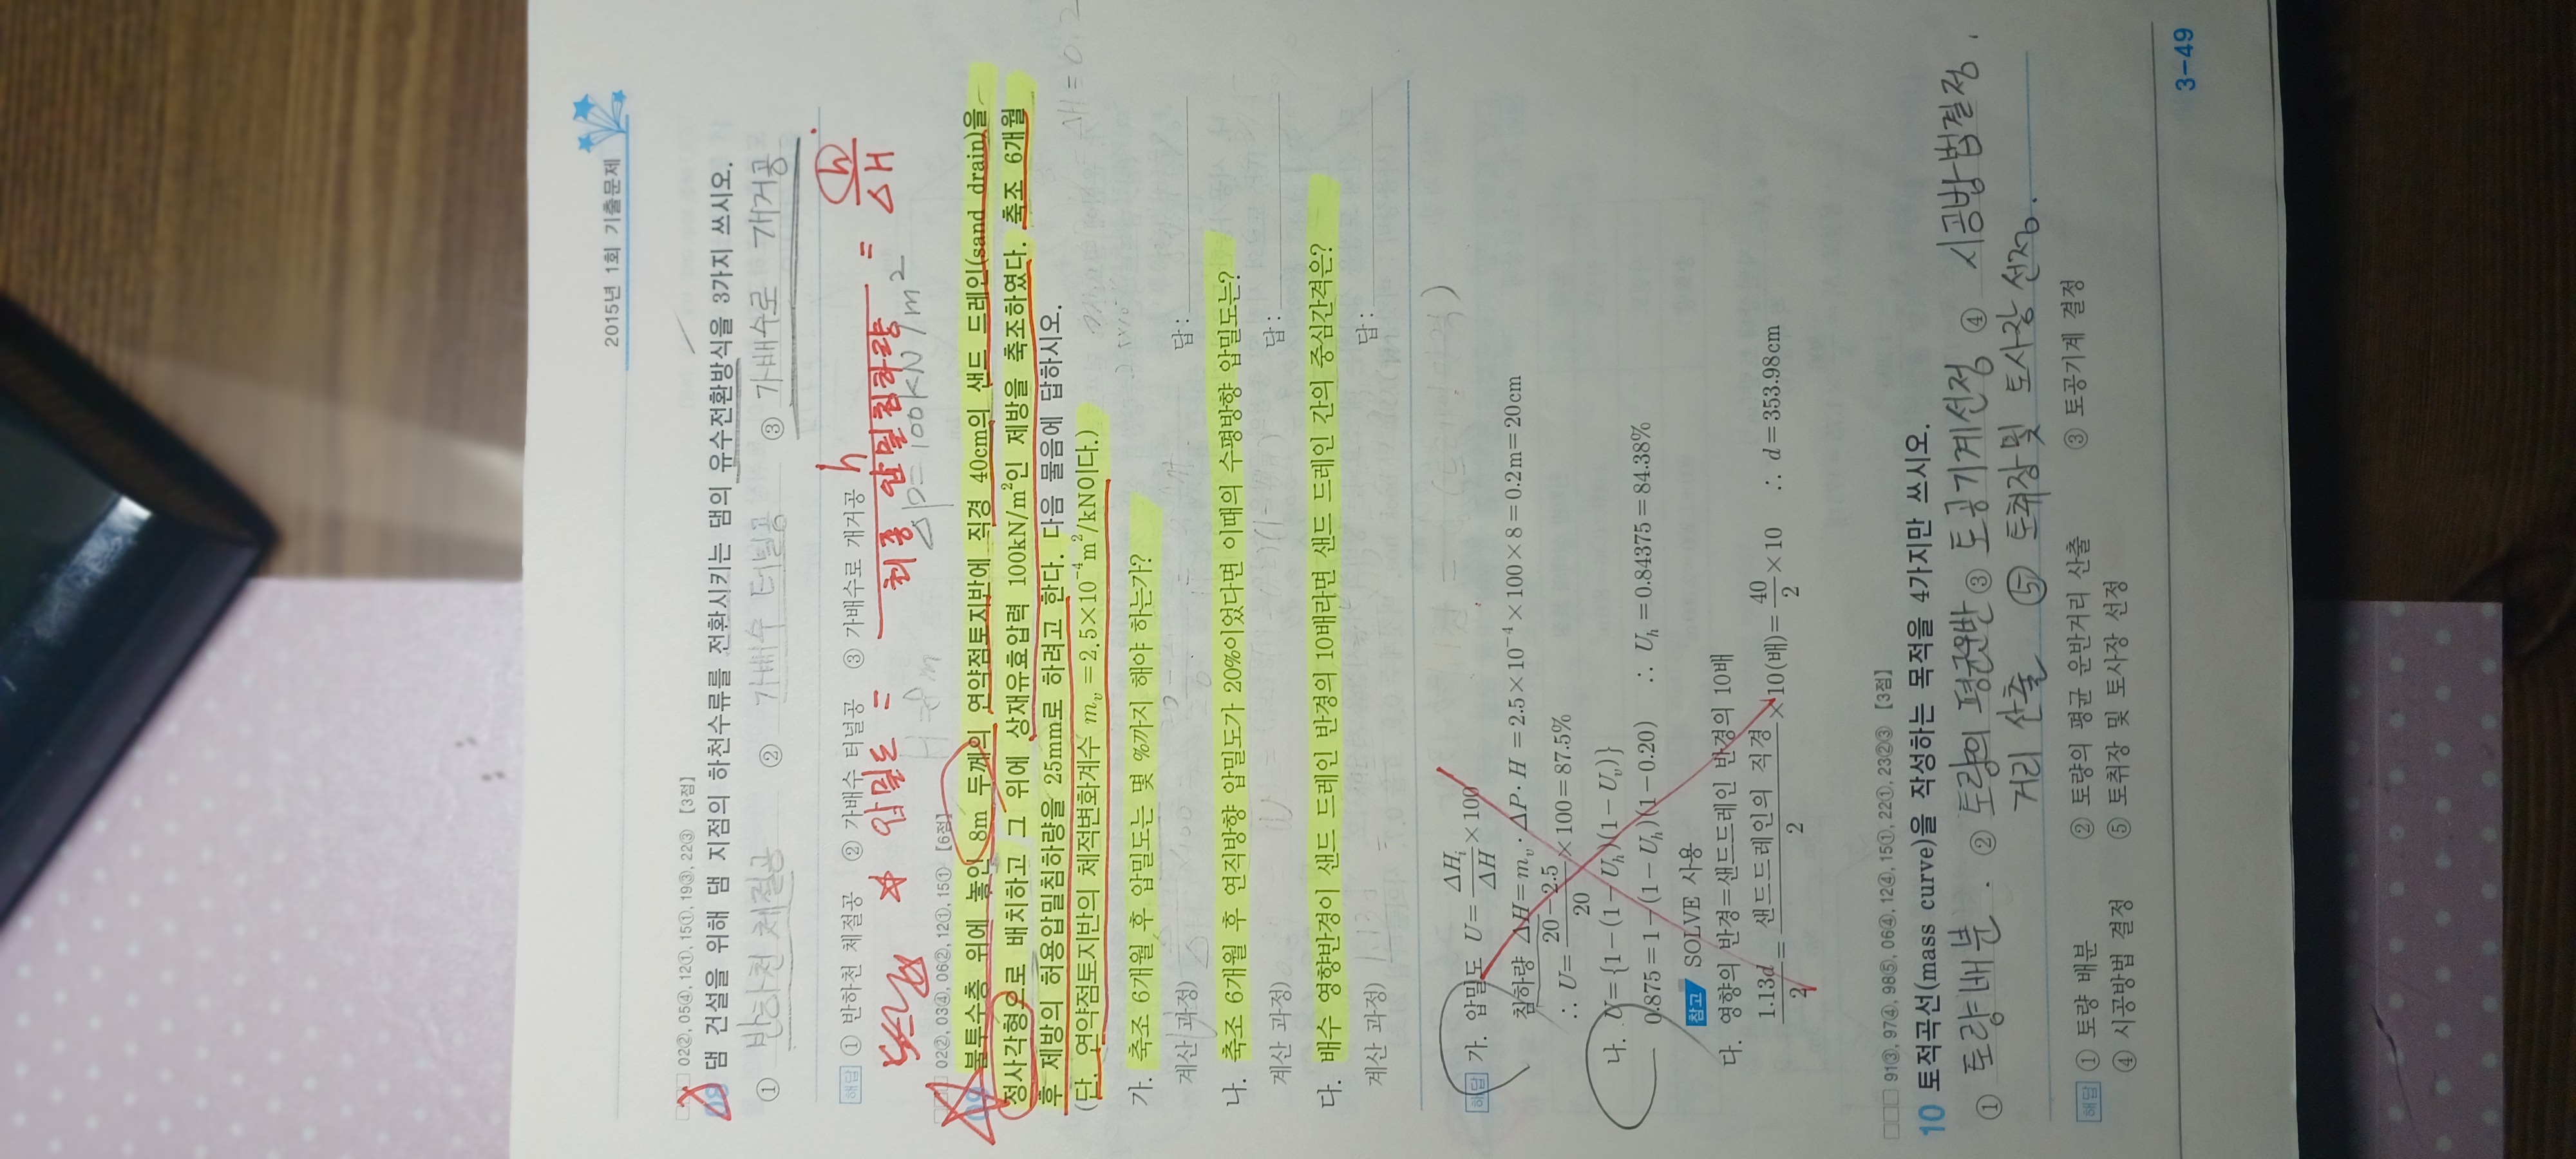 2015년 1회 기출문제
□□□ 02②, 05④, 12①, 15①, 19③, 22③ [3점]
08 댐 건설을 위해 댐 지점의 하천수류를 전환시키는 댐의 유수전환방식을 3가지 쓰시오.
① 반하천 체절공 ② 가배수 터널공 ③ 가배수로 개거공
해답 ① 반하천 체절공 ② 가배수 터널공 ③ 가배수로 개거공
압밀도 = h / 최종 압밀침하량 = h / ΔH
H=8m ΔP=100kN/m2
□□□ 02②, 03④, 06②, 12①, 15① [6점]
09 불투수층 위에 놓인 8m 두께의 연약점토지반에 직경 40cm의 샌드 드레인(sand drain)을
정사각형으로 배치하고 그 위에 상재유효압력 100kN/m²인 제방을 축조하였다. 축조 6개월
후 제방의 허용압밀침하량을 25mm로 하려고 한다. 다음 물음에 답하시오.
(단, 연약점토지반의 체적변화계수 mv = 2.5×10⁻⁴m²/kN이다.)
가. 축조 6개월 후 압밀도는 몇 %까지 해야 하는가?
계산 과정) 답:
나. 축조 6개월 후 연직방향 압밀도가 20%이었다면 이때의 수평방향 압밀도는?
계산 과정) 답:
다. 배수 영향반경이 샌드 드레인 반경의 10배라면 샌드 드레인 간의 중심간격은?
계산 과정) 답:
해답 가. 압밀도 U = ΔHi/ΔH ×100
침하량 ΔH = mv·ΔP·H = 2.5×10⁻⁴×100×8 = 0.2m = 20cm
∴ U = (20−2.5)/20 ×100 = 87.5%
나. U = {1−(1−Uh)(1−Uv)}
0.875 = 1−(1−Uh)(1−0.20) ∴ Uh = 0.84375 = 84.38%
참고 SOLVE 사용
다. 영향의 반경=샌드드레인 반경의 10배
1.13d/2 = 샌드드레인의 직경/2 ×10(배) = 40/2 ×10 ∴ d = 353.98cm
□□□ 91③, 97④, 98⑤, 06④, 12④, 15①, 22①, 23②③ [3점]
10 토적곡선(mass curve)을 작성하는 목적을 4가지만 쓰시오.
① 토량배분. ② 토량의 평균운반 ③ 토공기계선정 ④ 시공방법결정.
거리 산출 ⑤ 토취장및 토사장 선정.
해답 ① 토량 배분 ② 토량의 평균 운반거리 산출 ③ 토공기계 결정
④ 시공방법 결정 ⑤ 토취장 및 토사장 선정
3-49